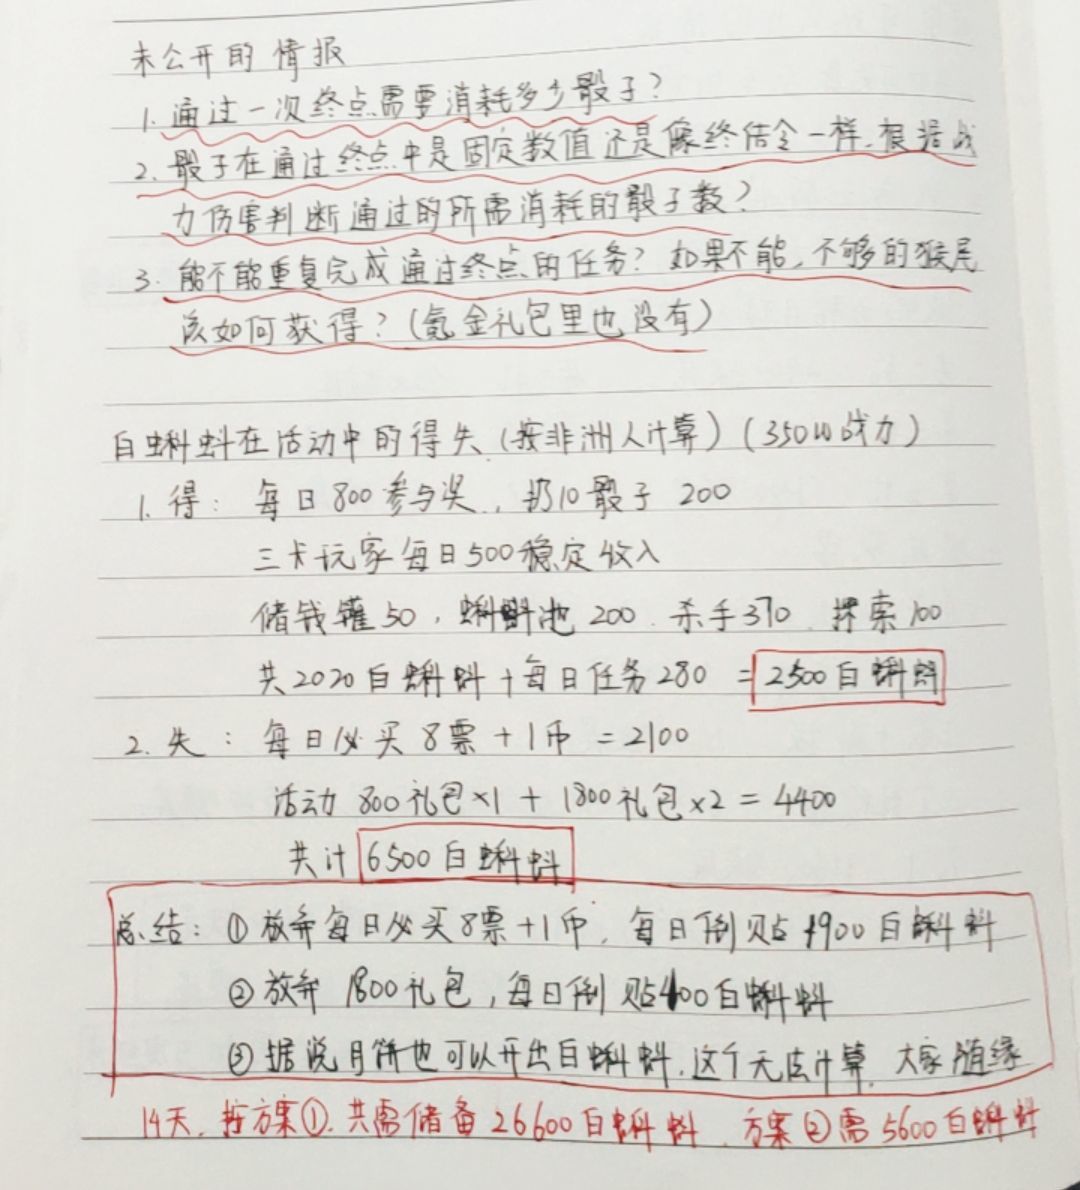 未公开的情报
1. 通过一次终点需要消耗多少骰子?
2. 骰子在通过终点中是固定数值还是像终结令一样,根据战
力伤害判断通过的所需消耗的骰子数?
3. 能不能重复完成通过终点的任务? 如果不能,不够的猴尾
该如何获得?(氪金礼包里也没有)
白蝌蚪在活动中的得失(按非洲人计算)(350W战力)
1. 得: 每日800参与奖, 扔10骰子 200
三卡玩家每日500稳定收入
储钱罐50, 蝌蚪池200. 杀手370. 探索100
共2020白蝌蚪+每日任务280 = 2500白蝌蚪
2. 失: 每日必买8票+1币 = 2100
活动 800礼包×1 + 1800礼包×2 = 4400
共计 6500白蝌蚪
总结: ①放弃每日必买8票+1币, 每日倒贴1900白蝌蚪
②放弃1800礼包, 每日倒贴400白蝌蚪
③据说月饼也可以开出白蝌蚪,这个无法计算, 大家随缘
14天. 按方案①,共需储备26600白蝌蚪, 方案②需5600白蝌蚪